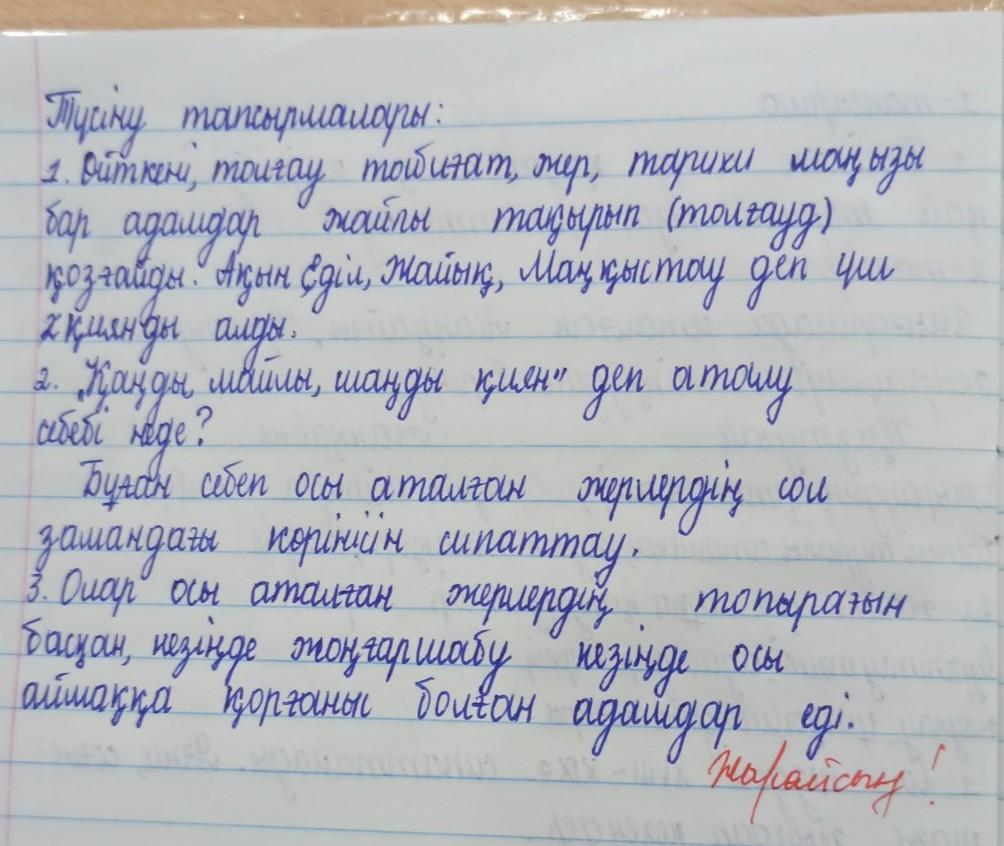 Түсіну тапсырмалары:
1. Өйткені, толғау табиғат, жер, тарихи маңызы
бар адамдар жайлы тақырып (толғауд)
қозғайды. Ақын Еділ, Жайық, Маңқыстау деп үш
қиянды алды.
2. „Қанды, майлы, шаңды қиян" деп аталу
себебі неде?
Бұған себеп осы аталған жерлердің сол
замандағы көрінісін сипаттау.
3. Олар осы аталған жерлердің топырағын
басқан, кезінде жоңғаршабу кезінде осы
аймаққа қорғаныс болған адамдар еді.
Жарайсың!